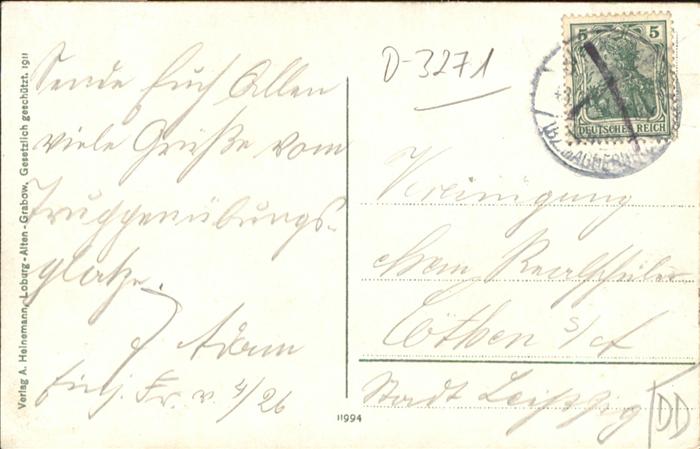 Sende Euch Allen
viele Grüße vom
Truppenübungs-
platze.
Adam
Einj. Fr. v. 4/26
Verlag A. Heinemann, Loburg-Alten-Grabow. Gesetzlich geschützt. 1911
11994
D-3271
5 5
DEUTSCHES REICH
Vereinigung
ehem. Realschüler
Cöthen i/A
Stadt Leipzig
DD